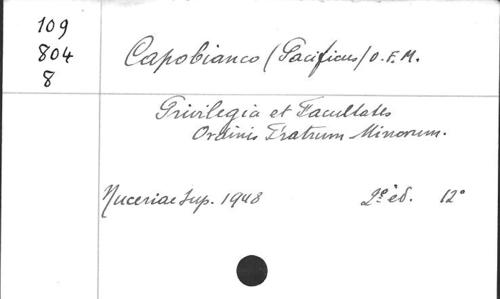 109
804
8
Capobianco (Pacificus) O.F.M.
Privilegia et Facultates
Ordinis Fratrum Minorum.
Nuceriae Sup. 1948 2e éd. 12°